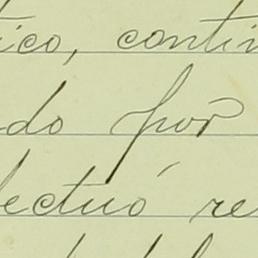 ico, contin
do por
lectuó re